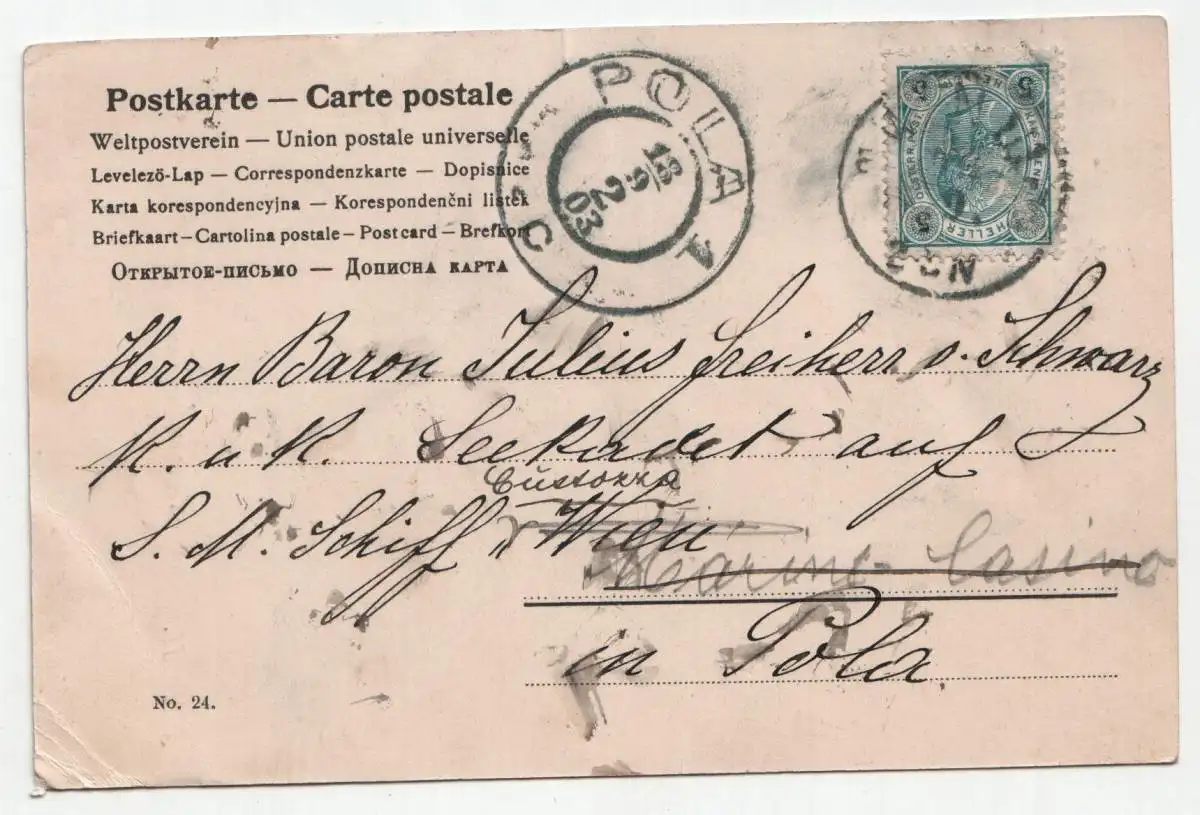 Postkarte — Carte postale
Weltpostverein — Union postale universelle
Levelező-Lap — Correspondenzkarte — Dopisnice
Karta korespondencyjna — Korespondenčni listek
Briefkaart — Cartolina postale — Post card — Brefkort
Открытое-письмо — Дописна карта
POLA 1
18/2
03
C
5
5
5
5
HELLER
Herrn Baron Julius Freiherr v. Schwarz
K. u. K. Seekadet auf
Custozza
S. M. Schiff „Wien
Marine-Casino
in Pola.
No. 24.